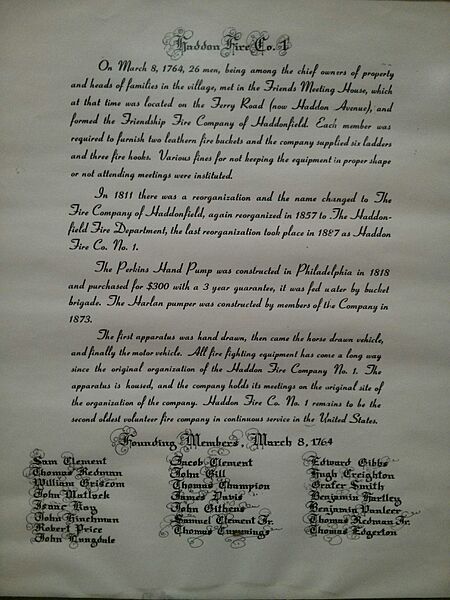 Haddon Fire Co. 1
On March 8, 1764, 26 men, being among the chief owners of property
and heads of families in the village, met in the Friends Meeting House, which
at that time was located on the Ferry Road (now Haddon Avenue), and
formed the Friendship Fire Company of Haddonfield. Each member was
required to furnish two leathern fire buckets and the company supplied six ladders
and three fire hooks. Various fines for not keeping the equipment in proper shape
or not attending meetings were instituted.
In 1811 there was a reorganization and the name changed to The
Fire Company of Haddonfield, again reorganized in 1857 to The Haddon-
field Fire Department, the last reorganization took place in 1887 as Haddon
Fire Co. No. 1.
The Perkins Hand Pump was constructed in Philadelphia in 1818
and purchased for $300 with a 3 year guarantee, it was fed water by bucket
brigade. The Harlan pumper was constructed by members of the Company in
1873.
The first apparatus was hand drawn, then came the horse drawn vehicle,
and finally the motor vehicle. All fire fighting equipment has come a long way
since the original organization of the Haddon Fire Company No. 1. The
apparatus is housed, and the company holds its meetings on the original site of
the organization of the company. Haddon Fire Co. No. 1 remains to be the
second oldest volunteer fire company in continuous service in the United States.
Founding Members, March 8, 1764
Sam Clement
Thomas Redman
William Griscom
John Matlock
Isaac Kay
John Hinchman
Robert Price
John Langdale
Jacob Clement
John Gill
Thomas Champion
James Davis
John Githens
Samuel Clement Jr.
Thomas Cummings
Edward Gibbs
Hugh Creighton
Grater Smith
Benjamin Hartley
Benjamin Vanleer
Thomas Redman Jr.
Thomas Edgerton